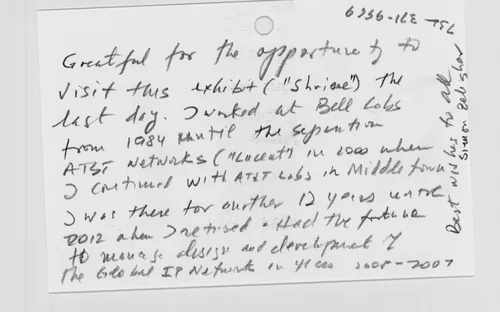 Greatful for the opportunity to
visit this exhibit ("Shrine") the
last day. I worked at Bell Labs
from 1984 until the separation
AT&T Networks ("Lucent") in 2000 when
I continued with AT&T Labs in Middletown
I was there for another 12 years until
2012 when I retired. Had the fortune
to manage design and development of
the Global IP Network in years 2005-2007
Best wishes to all
Simon